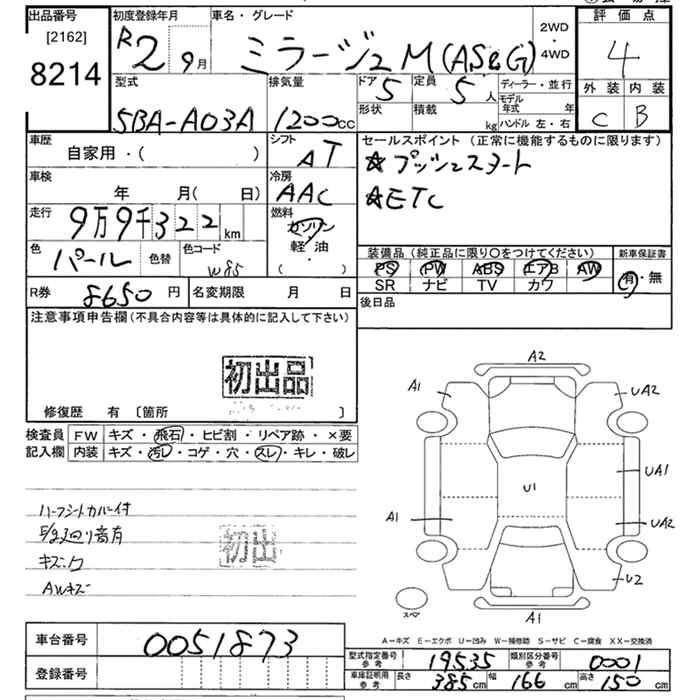 出品番号 初度登録年月 車名・グレード 評価点
[2162]
8214
R2 9月 ミラージュ M(AS&G) 2WD・4WD 4
型式 排気量 ドア 定員 ディーラー・並行 外装 内装
5BA-A03A 1200cc 5 5人 C B
形状 積載 kg モデル年式 年
ハンドル 左・右
車歴 シフト セールスポイント (正常に機能するものに限ります)
自家用・( ) AT ☆プッシュスタート
車検 冷房
年 月(日) AAC ☆ETC
走行 燃料
9万9千322km ガソリン
軽・油
( )
色 パール 色替 色コード W85
装備品(純正品に限り〇をつけてください) 新車保証書
PS PW ABS エアB AW 有・無
SR ナビ TV カワ
R券 8650円 名変期限 月 日 後日品
注意事項申告欄(不具合内容等は具体的に記入して下さい)
初出品
修復歴 有 〔箇所 〕
検査員 FW キズ・飛石・ヒビ割・リペア跡・×要
記入欄 内装 キズ・汚レ・コゲ・穴・スレ・キレ・破レ
ハーフシートカバー付
キズ、凹
AWキズ
初出
A2
A1 UA2
UA1
U1
A1 UA2
U2
スペア
A1
A-キズ E-エクボ U-凹み W-補修跡 S-サビ C-腐食 XX-交換済
車台番号 0051873
登録番号
型式指定番号 参考 19535 類別区分番号 参考 0001
車庫証明用 参考 長さ 385cm 幅 166cm 高さ 150cm